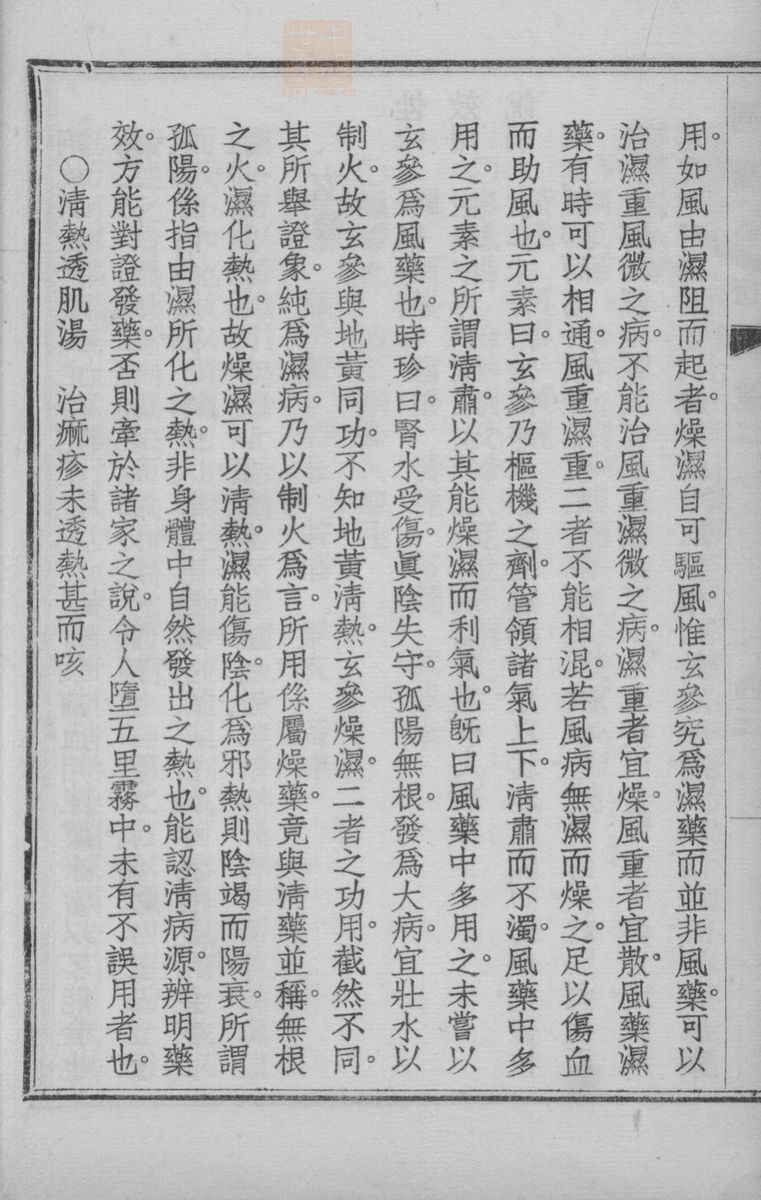 用。如風由濕阻而起者。燥濕自可驅風。惟玄參究爲濕藥而並非風藥。可以
治濕重風微之病。不能治風重濕微之病。濕重者宜燥。風重者宜散。風藥濕
藥。有時可以相通。風重濕重。二者不能相混。若風病無濕而燥之。足以傷血
而助風也。元素曰。玄參乃樞機之劑。管領諸氣上下。清肅而不濁。風藥中多
用之。元素之所謂清肅。以其能燥濕而利氣也。旣曰風藥中多用之。未嘗以
玄參爲風藥也。時珍曰。腎水受傷。眞陰失守。孤陽無根。發爲火病。宜壯水以
制火。故玄參與地黃同功。不知地黃清熱。玄參燥濕。二者之功用。截然不同。
其所舉證象。純爲濕病。乃以制火爲言。所用係屬燥藥。竟與清藥並稱。無根
之火。濕化熱也。故燥濕可以清熱。濕能傷陰。化爲邪熱則陰竭而陽衰。所謂
孤陽。係指由濕所化之熱。非身體中自然發出之熱也。能認清病源。辨明藥
效。方能對證發藥。否則牽於諸家之說。令人墮五里霧中。未有不誤用者也。
〇清熱透肌湯 治痲疹未透熱甚而咳